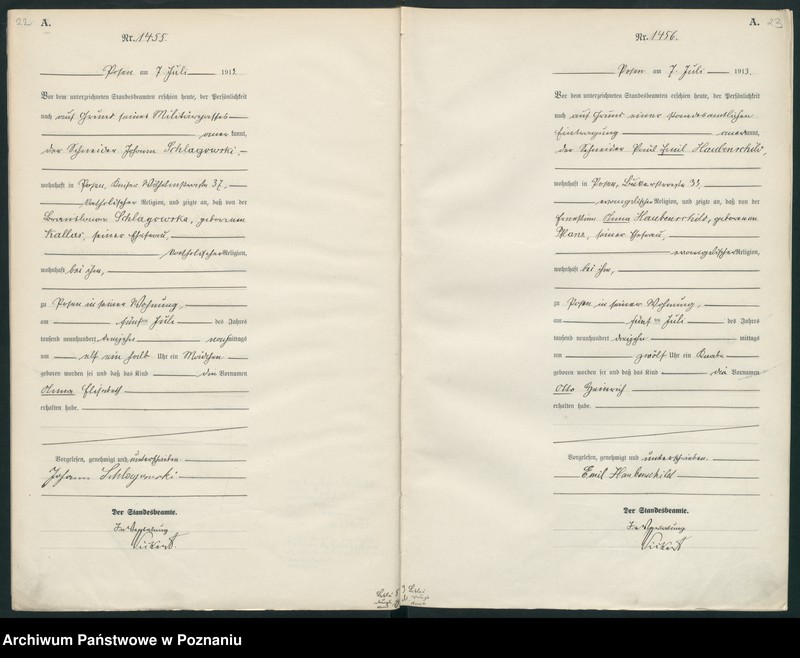 22
A.
Nr. 1455.
Posen am 7. Juli 1913.
Vor dem unterzeichneten Standesbeamten erschien heute, der Persönlichkeit
nach auf Grund seines Militärpasses
anerkannt,
der Schneider Johann Schlagowski,
wohnhaft in Posen, Kaiser Wilhelmstraße 37,
katholischer Religion, und zeigte an, daß von der
Schlagowska, geborenen
Kallas, seiner Ehefrau,
katholischer Religion,
wohnhaft bei ihm,
zu Posen in seiner Wohnung,
am fünften Juli des Jahres
tausend neunhundert dreizehn nachmittags
um elf ein halb Uhr ein Mädchen
geboren worden sei und daß das Kind die Vornamen
Anna Elisabeth
erhalten habe.
Vorgelesen, genehmigt und unterschrieben
Johann Schlagowski
Der Standesbeamte.
In Vertretung
A.
23
Nr. 1456.
Posen am 7. Juli 1913.
Vor dem unterzeichneten Standesbeamten erschien heute, der Persönlichkeit
nach auf Grund einer standesamtlichen
Eintragung anerkannt,
der Schneider Paul Emil Haubenschild,
wohnhaft in Posen, Bukerstraße 33,
evangelischer Religion, und zeigte an, daß von der
Ernestine Anna Haubenschild, geborenen
seiner Ehefrau,
evangelischer Religion,
wohnhaft bei ihm,
zu Posen in seiner Wohnung,
am fünften Juli des Jahres
tausend neunhundert dreizehn mittags
um zwölf Uhr ein Knabe
geboren worden sei und daß das Kind die Vornamen
Otto Heinrich
erhalten habe.
Vorgelesen, genehmigt und unterschrieben.
Emil Haubenschild
Der Standesbeamte.
In Vertretung
Archiwum Państwowe w Poznaniu